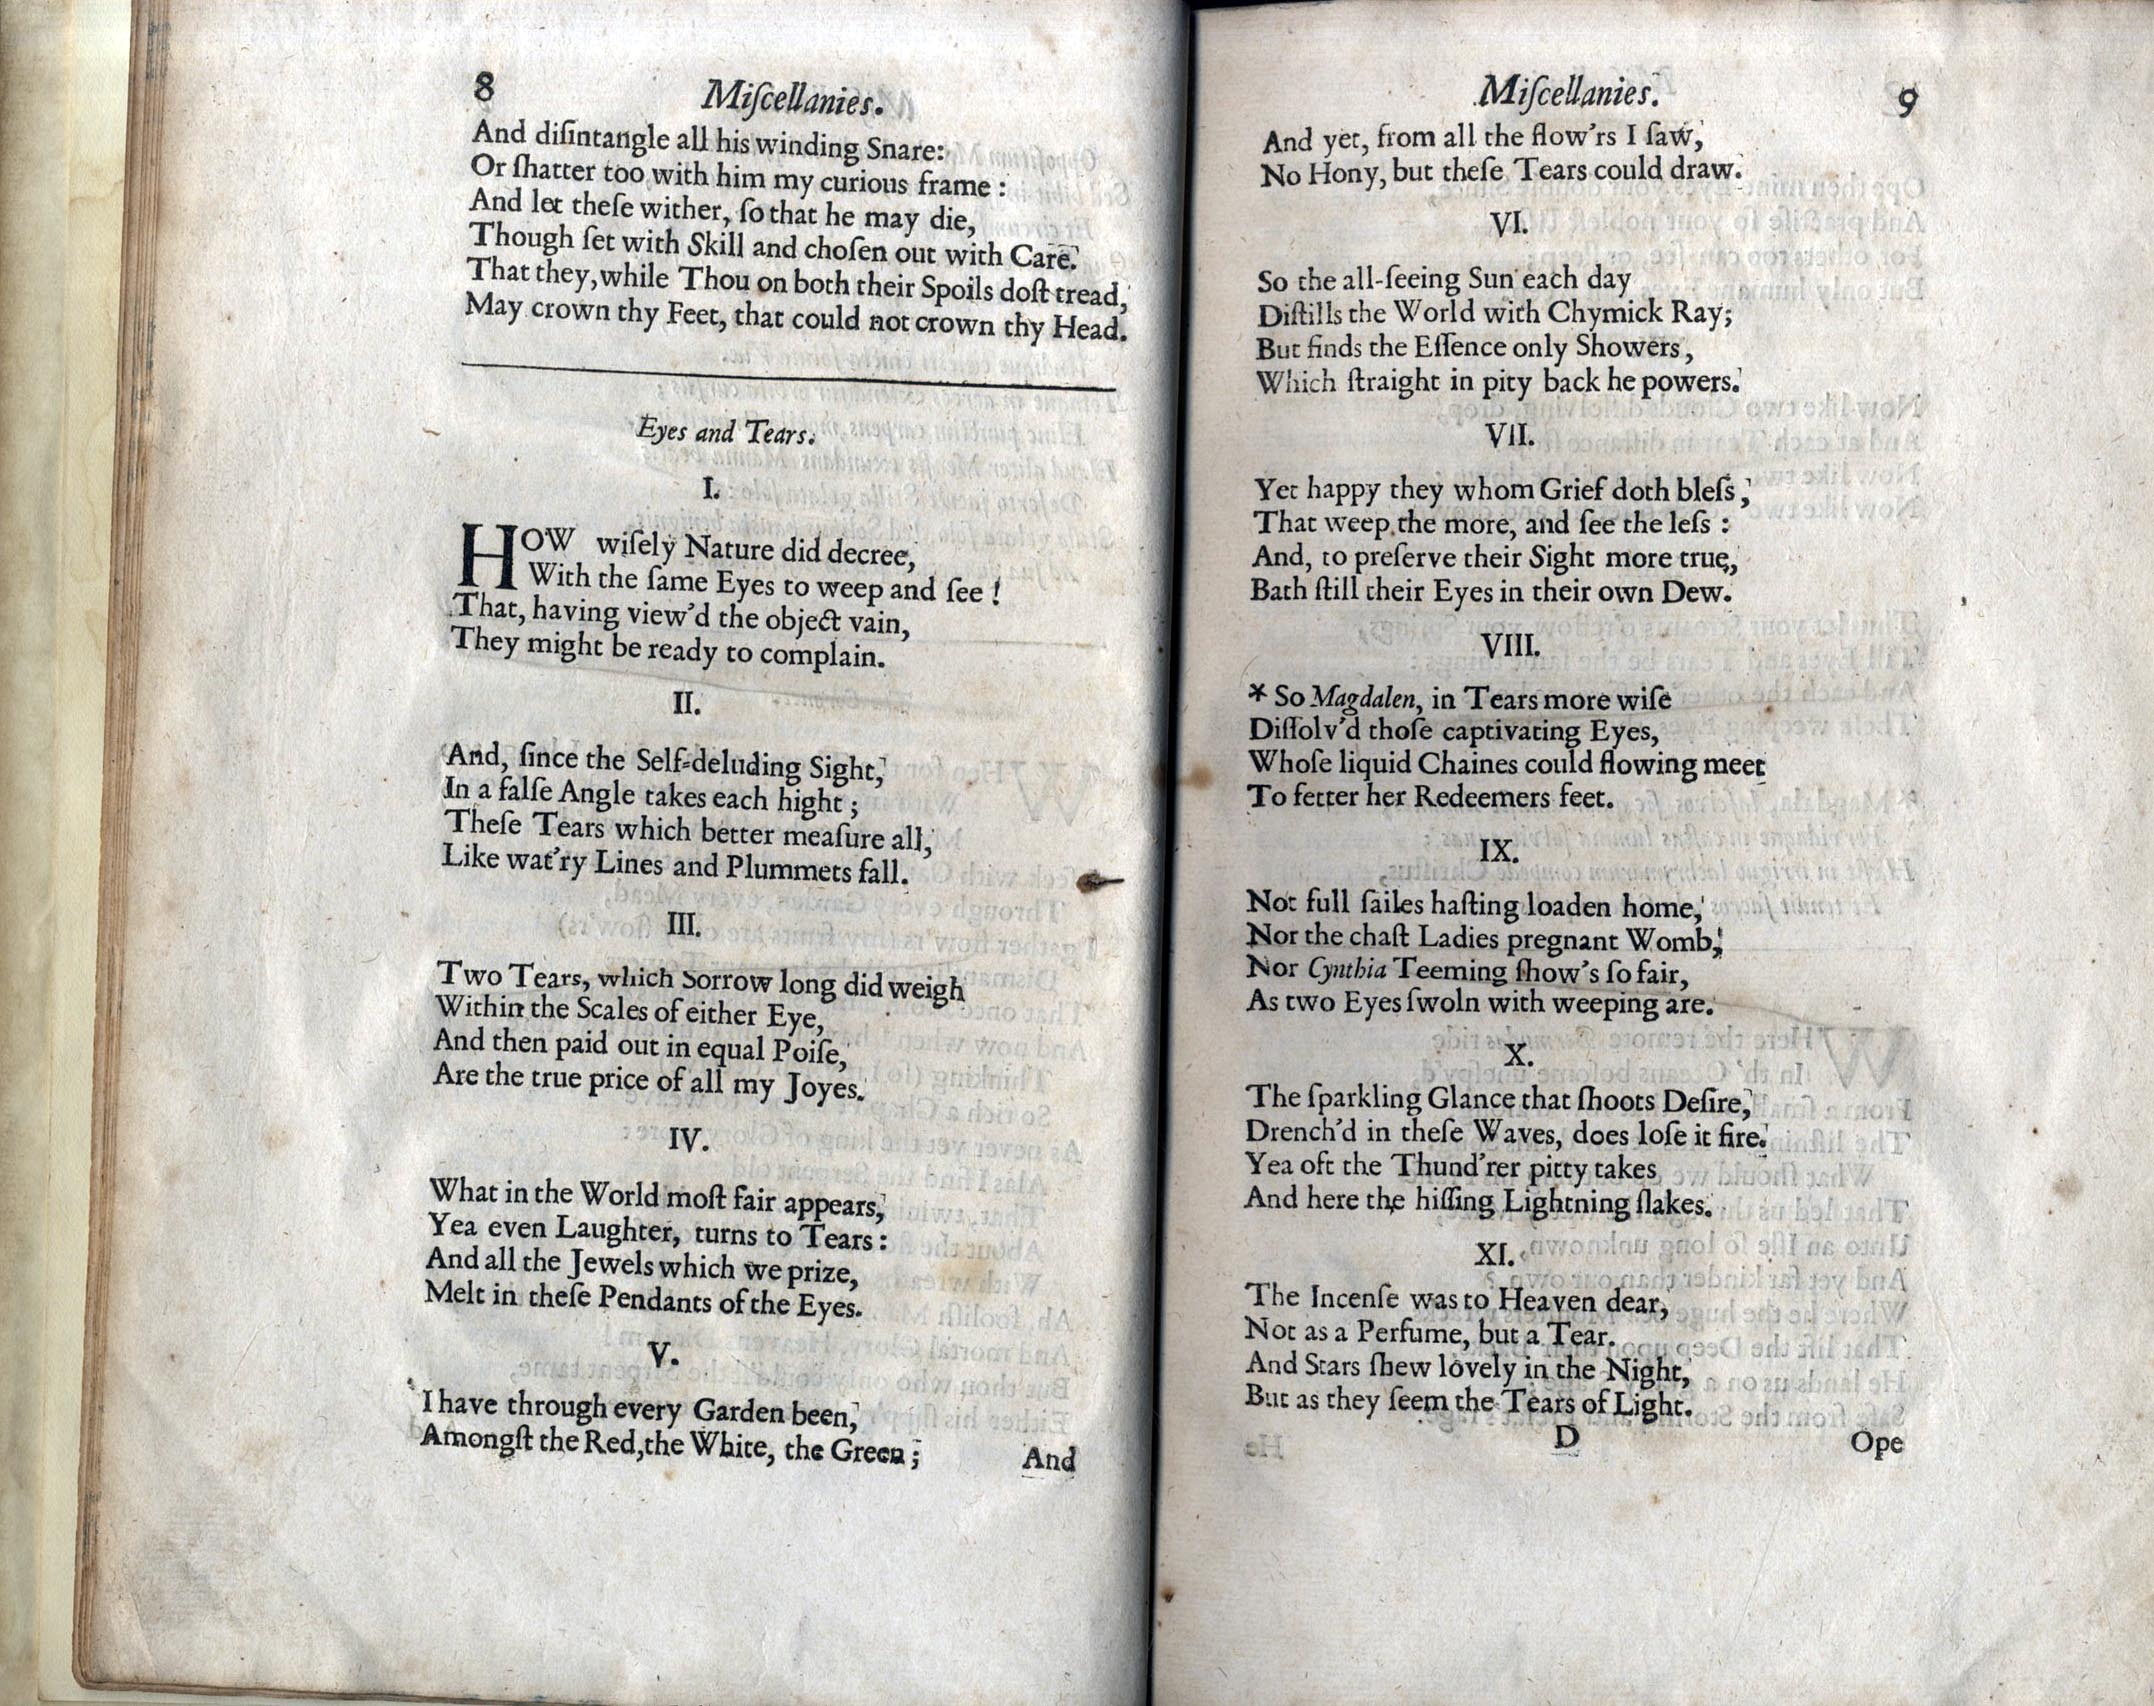 8
Miſcellanies.
And diſintangle all his winding Snare:
Or ſhatter too with him my curious frame :
And let theſe wither, ſo that he may die,
Though ſet with Skill and choſen out with Care.
That they, while Thou on both their Spoils doſt tread,
May crown thy Feet, that could not crown thy Head.
Eyes and Tears.
I.
HOW wiſely Nature did decree,
With the ſame Eyes to weep and ſee !
That, having view'd the object vain,
They might be ready to complain.
II.
And, ſince the Self-deluding Sight,
In a falſe Angle takes each hight ;
Theſe Tears which better meaſure all,
Like wat'ry Lines and Plummets fall.
III.
Two Tears, which Sorrow long did weigh
Within the Scales of either Eye,
And then paid out in equal Poiſe,
Are the true price of all my Joyes.
IV.
What in the World moſt fair appears,
Yea even Laughter, turns to Tears :
And all the Jewels which we prize,
Melt in theſe Pendants of the Eyes.
V.
I have through every Garden been,
Amongſt the Red, the White, the Green ;
And
Miſcellanies.
9
And yet, from all the flow'rs I ſaw,
No Hony, but theſe Tears could draw.
VI.
So the all-ſeeing Sun each day
Diſtills the World with Chymick Ray;
But finds the Eſſence only Showers,
Which ſtraight in pity back he powers.
VII.
Yet happy they whom Grief doth bleſs,
That weep the more, and ſee the leſs :
And, to preſerve their Sight more true,
Bath ſtill their Eyes in their own Dew.
VIII.
* So Magdalen, in Tears more wiſe
Diſſolv'd thoſe captivating Eyes,
Whoſe liquid Chaines could flowing meet
To fetter her Redeemers feet.
IX.
Not full ſailes haſting loaden home,
Nor the chaſt Ladies pregnant Womb,
Nor Cynthia Teeming ſhow's ſo fair,
As two Eyes ſwoln with weeping are.
X.
The ſparkling Glance that ſhoots Deſire,
Drench'd in theſe Waves, does loſe it fire.
Yea oft the Thund'rer pitty takes
And here the hiſſing Lightning ſlakes.
XI.
The Incenſe was to Heaven dear,
Not as a Perfume, but a Tear.
And Stars ſhew lovely in the Night,
But as they ſeem the Tears of Light.
D
Ope